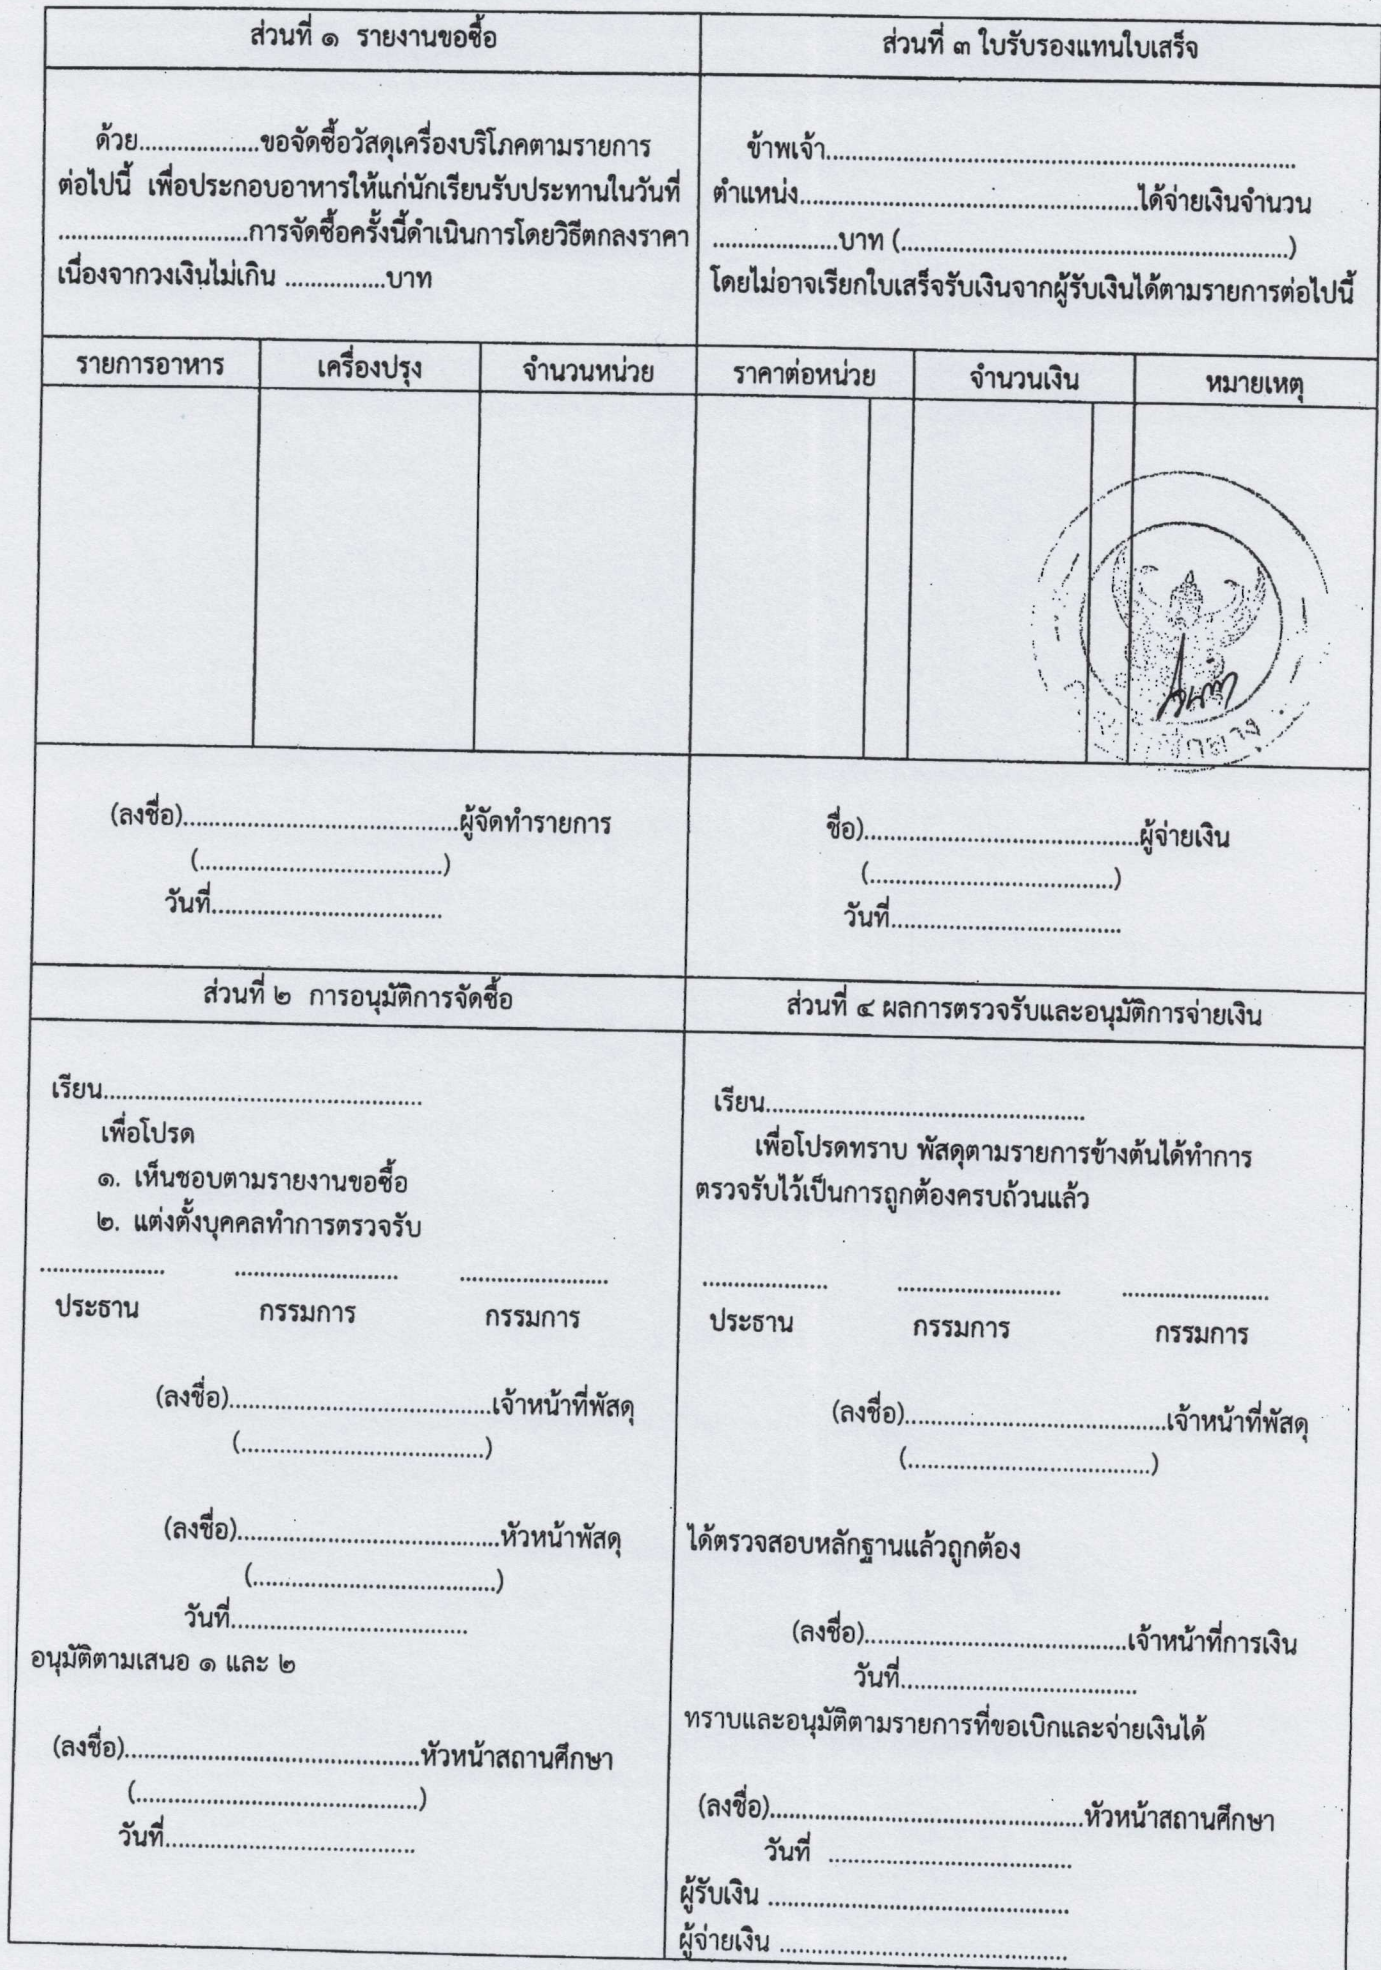 ส่วนที่ ๑ รายงานขอซื้อ
ด้วย...................ขอจัดซื้อวัสดุเครื่องบริโภคตามรายการ
ต่อไปนี้ เพื่อประกอบอาหารให้แก่นักเรียนรับประทานในวันที่
..............................การจัดซื้อครั้งนี้ดำเนินการโดยวิธีตกลงราคา
เนื่องจากวงเงินไม่เกิน ................บาท
ส่วนที่ ๓ ใบรับรองแทนใบเสร็จ
ข้าพเจ้า...........................................................................
ตำแหน่ง......................................................ได้จ่ายเงินจำนวน
....................บาท (..............................................................)
โดยไม่อาจเรียกใบเสร็จรับเงินจากผู้รับเงินได้ตามรายการต่อไปนี้
รายการอาหาร เครื่องปรุง จำนวนหน่วย ราคาต่อหน่วย จำนวนเงิน หมายเหตุ
(ลงชื่อ)............................................ผู้จัดทำรายการ
(.......................................)
วันที่.....................................
ชื่อ)............................................ผู้จ่ายเงิน
(.......................................)
วันที่.....................................
ส่วนที่ ๒ การอนุมัติการจัดซื้อ
เรียน...................................................
เพื่อโปรด
๑. เห็นชอบตามรายงานขอซื้อ
๒. แต่งตั้งบุคคลทำการตรวจรับ
.................... .......................... ........................
ประธาน กรรมการ กรรมการ
(ลงชื่อ)..........................................เจ้าหน้าที่พัสดุ
(.......................................)
(ลงชื่อ)..........................................หัวหน้าพัสดุ
(.......................................)
วันที่......................................
อนุมัติตามเสนอ ๑ และ ๒
(ลงชื่อ)...............................................หัวหน้าสถานศึกษา
(.............................................)
วันที่........................................
ส่วนที่ ๔ ผลการตรวจรับและอนุมัติการจ่ายเงิน
เรียน...................................................
เพื่อโปรดทราบ พัสดุตามรายการข้างต้นได้ทำการ
ตรวจรับไว้เป็นการถูกต้องครบถ้วนแล้ว
.................... .......................... ........................
ประธาน กรรมการ กรรมการ
(ลงชื่อ)..........................................เจ้าหน้าที่พัสดุ
(.......................................)
ได้ตรวจสอบหลักฐานแล้วถูกต้อง
(ลงชื่อ)..........................................เจ้าหน้าที่การเงิน
วันที่......................................
ทราบและอนุมัติตามรายการที่ขอเบิกและจ่ายเงินได้
(ลงชื่อ)..................................................หัวหน้าสถานศึกษา
วันที่ .......................................
ผู้รับเงิน ................................................
ผู้จ่ายเงิน ..............................................